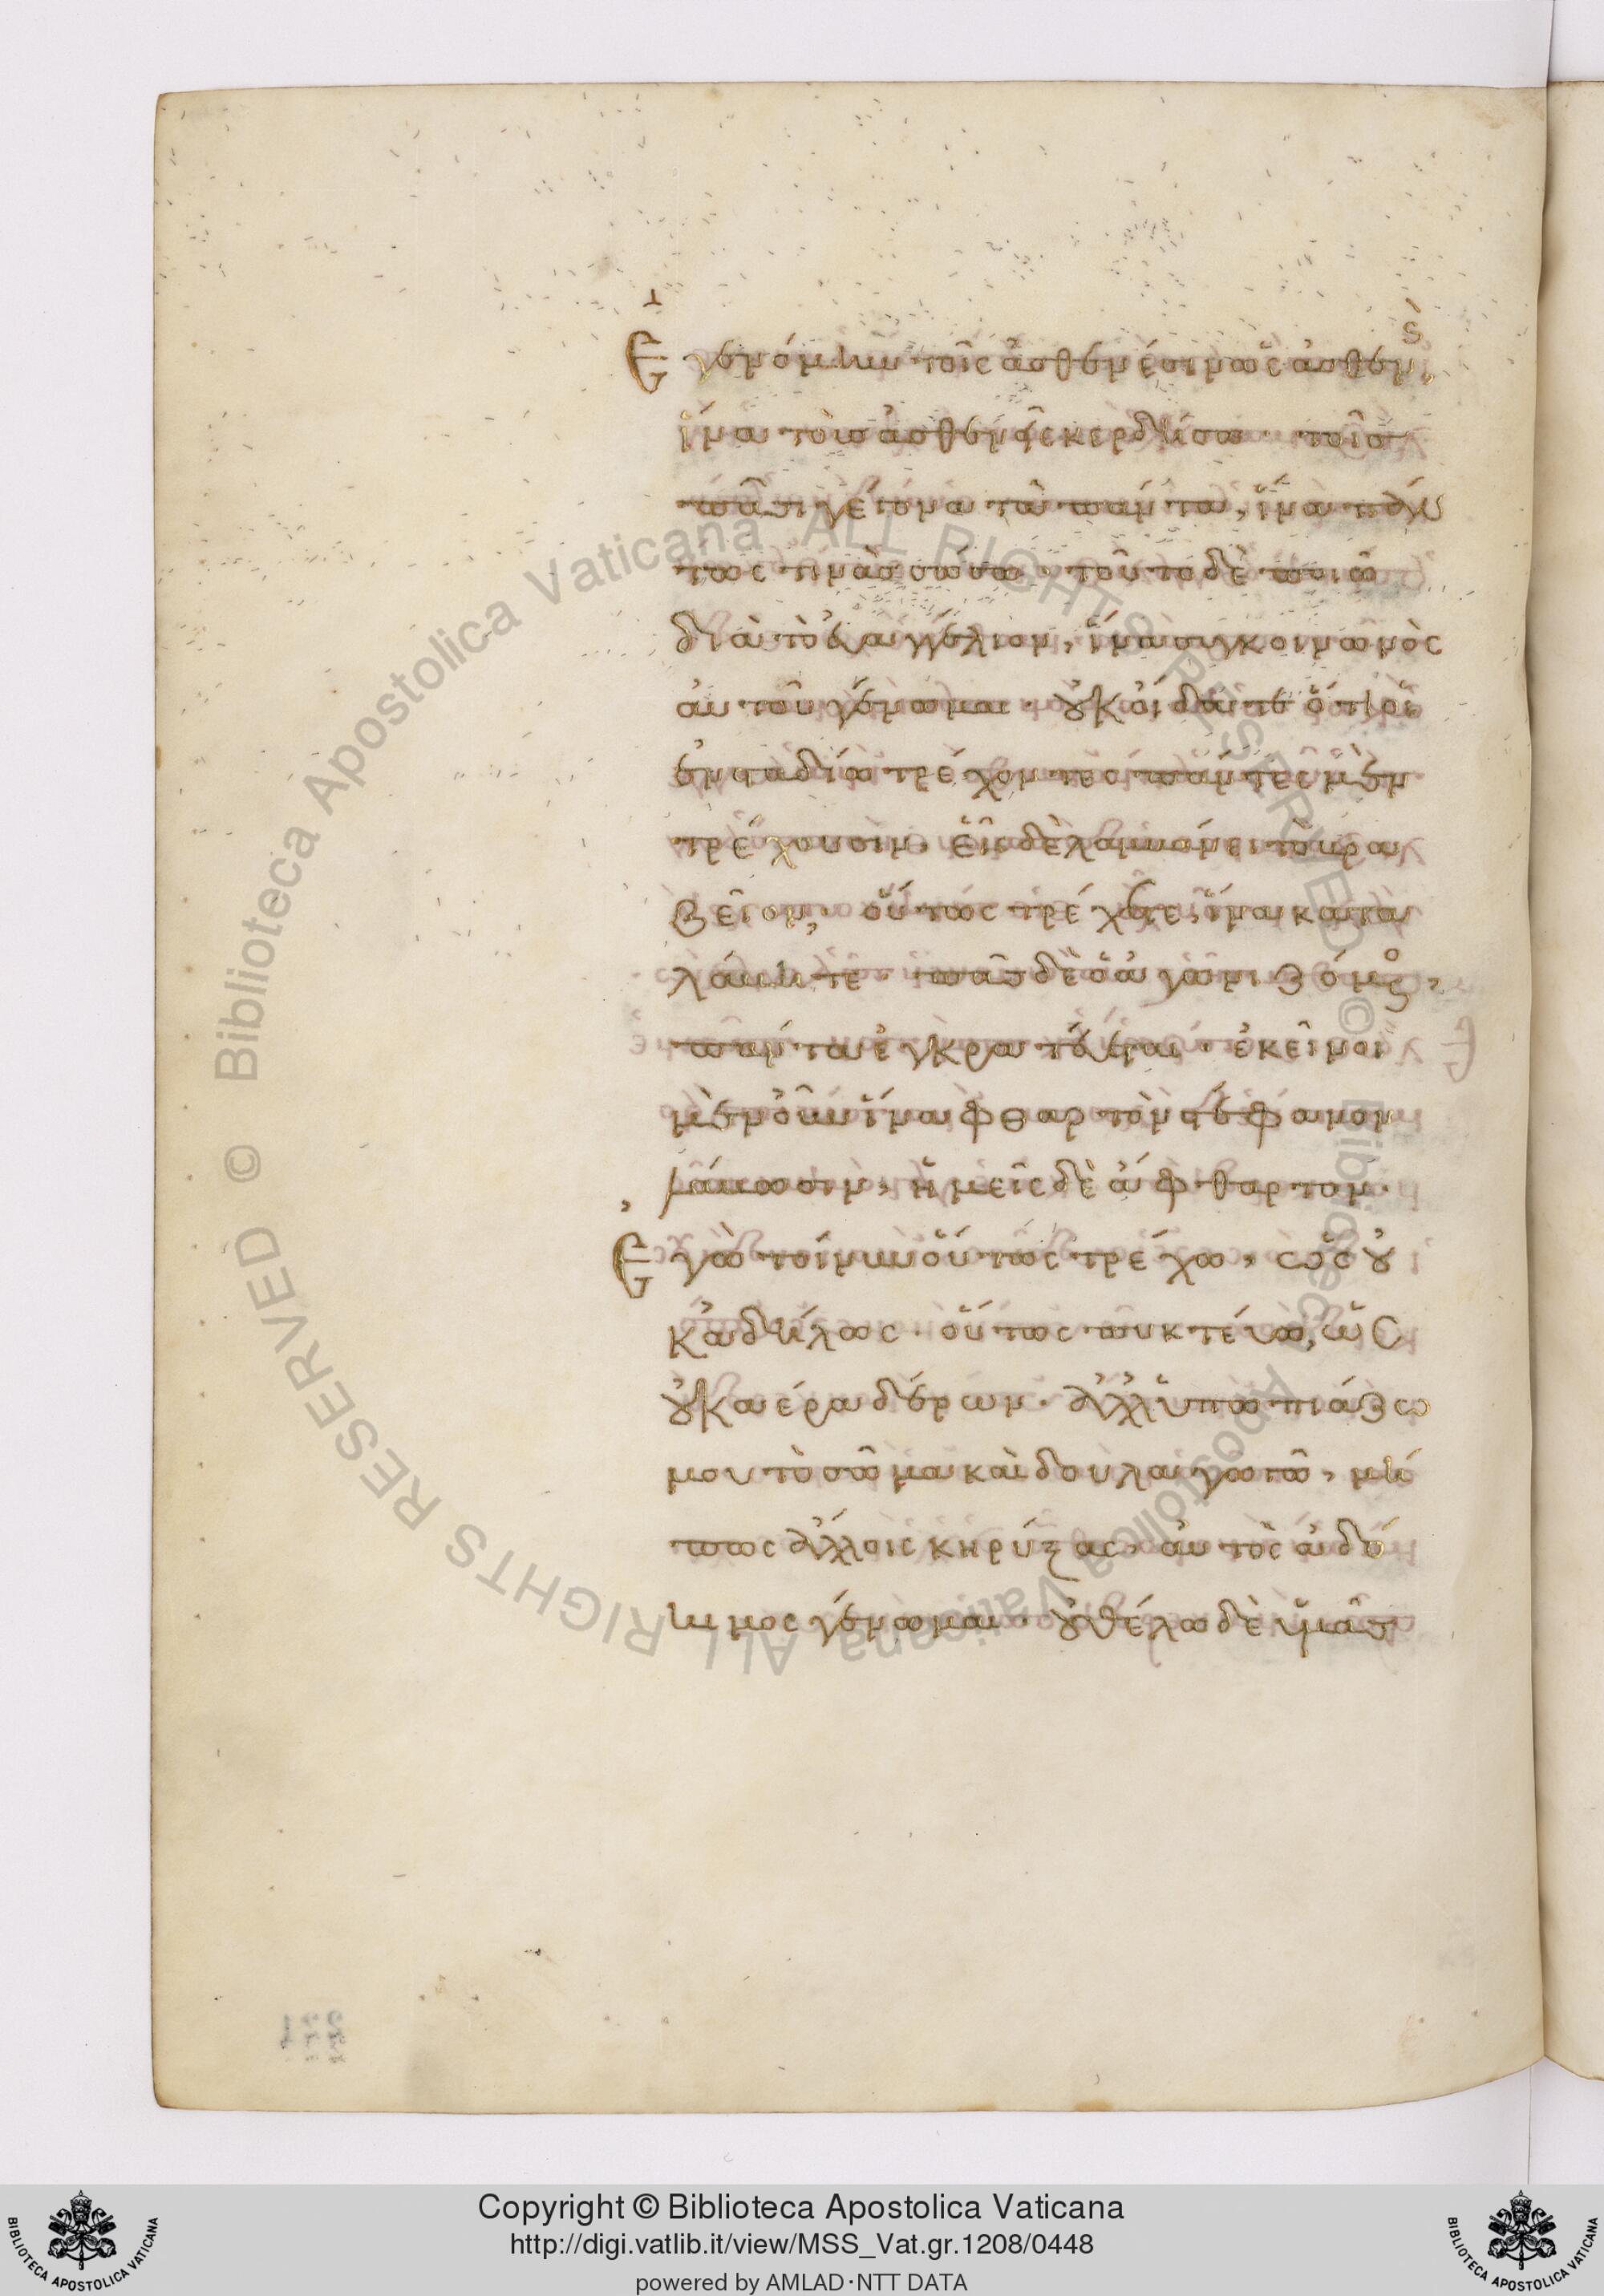 Ἐγενόμην τοῖς ἀσθενέσιν ὡς ἀσθενὴς,
ἵνα τοὺς ἀσθενεῖς κερδήσω· τοῖς
πᾶσι γέγονα τὰ πάντα, ἵνα πάν
τως τινὰς σώσω· τοῦτο δὲ ποιῶ
διὰ τὸ εὐαγγέλιον, ἵνα συγκοινωνὸς
αὐτοῦ γένωμαι· οὐκ οἴδατε ὅτι οἱ
ἐν σταδίῳ τρέχοντες πάντες μὲν
τρέχουσιν· εἷς δὲ λαμβάνει τὸ βρα
βεῖον, οὕτως τρέχετε, ἵνα κατα
λάβητε· πᾶς δὲ ὁ ἀγωνιζόμενος,
πάντα ἐγκρατεύεται· ἐκεῖνοι
μὲν οὖν ἵνα φθαρτὸν στέφανον
λάβωσιν, ἡμεῖς δὲ ἄφθαρτον·
Ἐγὼ τοίνυν οὕτως τρέχω, ὡς οὐ
κ ἀδήλως· οὕτως πυκτεύω, ὡς
οὐκ ἀέρα δέρων· ἀλλ' ὑπωπιάζω
μου τὸ σῶμα καὶ δουλαγωγῶ, μή
πως ἄλλοις κηρύξας, αὐτὸς ἀδό
κιμος γένωμαι· οὐ θέλω δὲ ὑμᾶς
Copyright © Biblioteca Apostolica Vaticana
http://digi.vatlib.it/view/MSS_Vat.gr.1208/0448
powered by AMLAD·NTT DATA
BIBLIOTECA APOSTOLICA VATICANA
BIBLIOTECA APOSTOLICA VATICANA
© Biblioteca Apostolica Vaticana ALL RIGHTS RESERVED
© Biblioteca Apostolica Vaticana ALL RIGHTS RESERVED